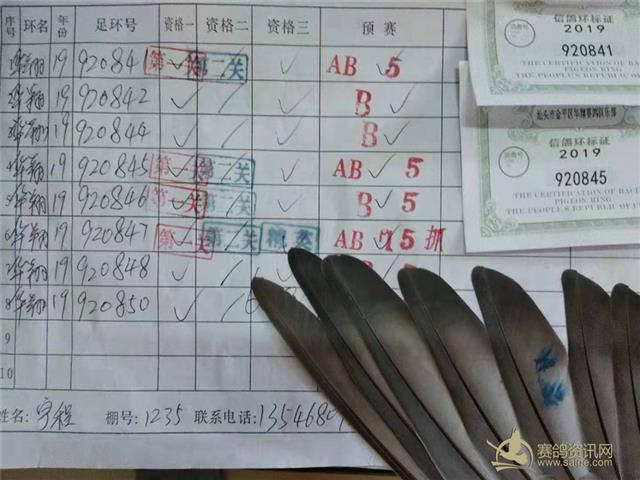 序号 环名 年份 足环号 资格一 资格二 资格三 预赛
华翔 19 920841 第一关 第二关 AB 5
华翔 19 920842 B
华翔 19 920844 B
华翔 19 920845 第一关 第二关 AB 5
华翔 19 920846 第一关 第二关 B 5
华翔 19 920847 第一关 第二关 AB 5 抓
华翔 19 920848
华翔 19 920850
9
10
姓名: 宇程 棚号: 1235 联系电话: 1354680
信鸽环标证
2019
920841
THE CERTIFICATION OF RAC
PIGEON RING
THE PEOPLE'S REPUBLIC OF
信鸽环标证
2019
920845
THE CERTIFICATION OF RAC
PIGEON RING
THE PEOPLE'S REPUBLIC OF
赛鸽资讯网
www.saige.com